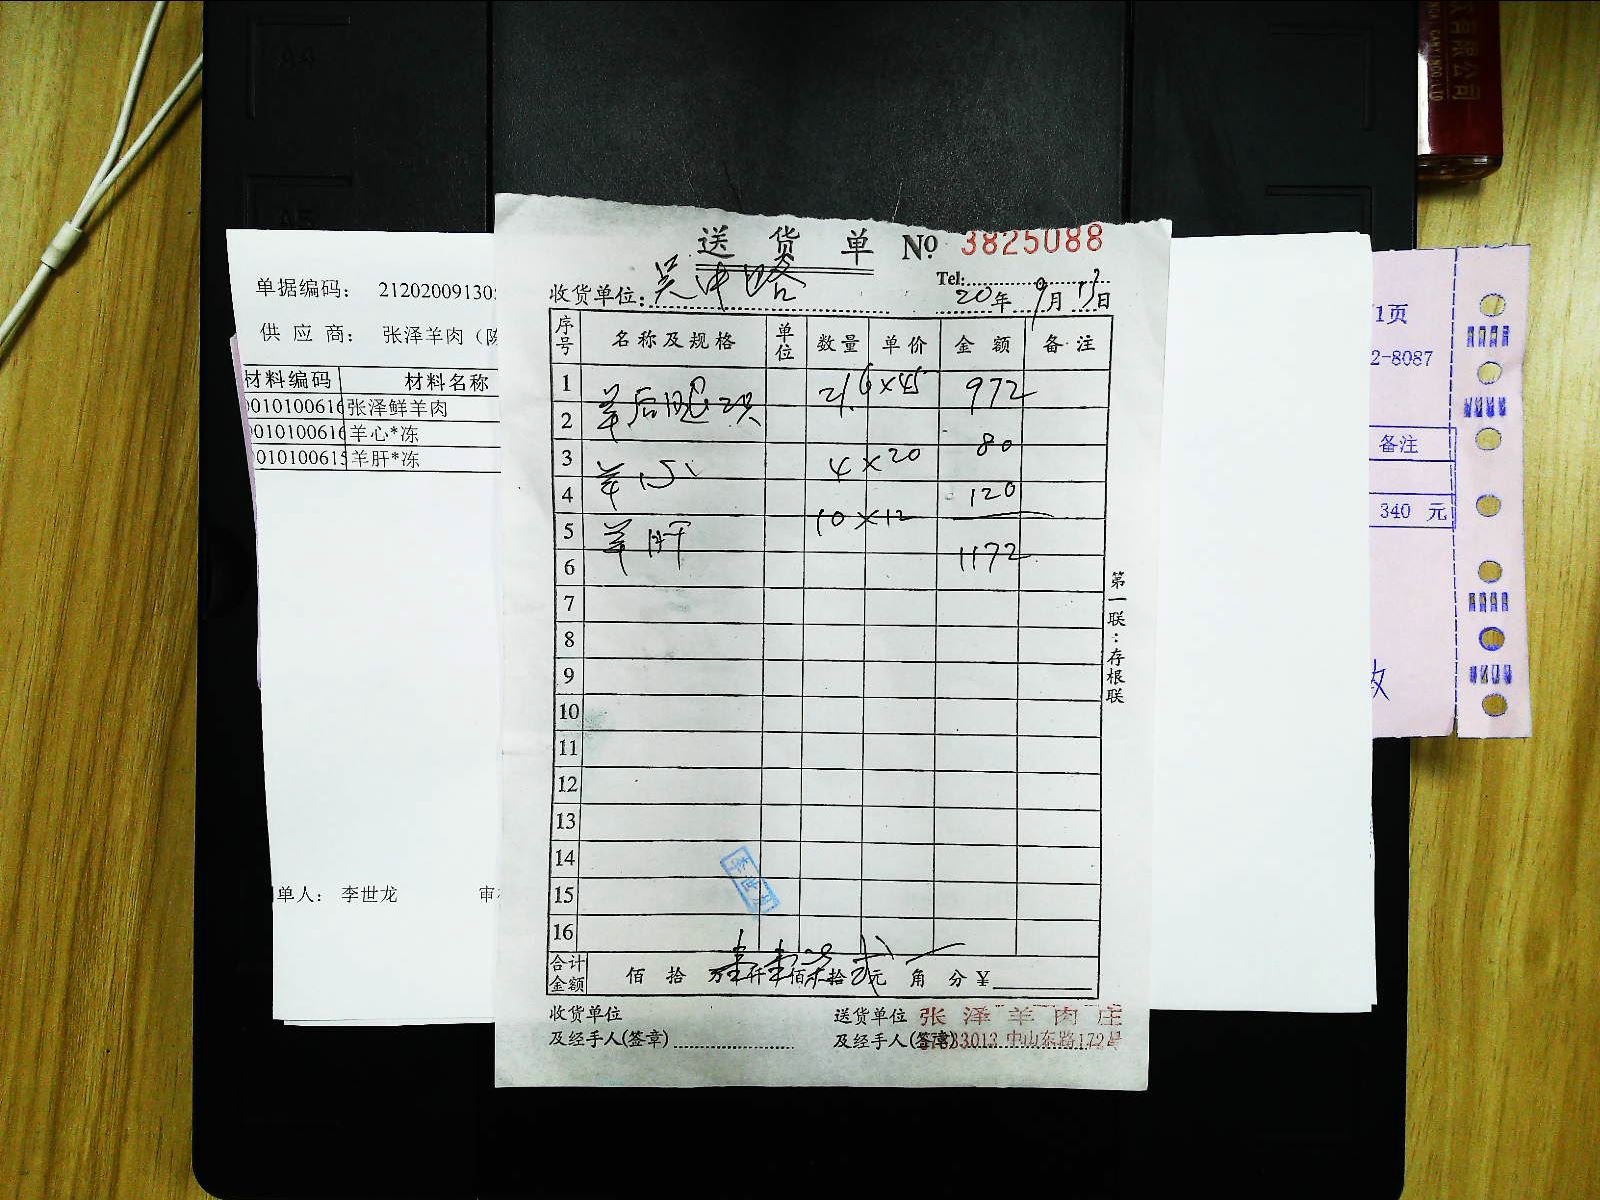 有限公司
送 货 单 No 3825088
Tel:
收货单位: 吴中路 20年9月13日
序号 名称及规格 单位 数量 单价 金额 备注
1 羊后腿块 21.6×45 972
2
3 羊心 4×20 80
4 120
5 羊肝 10×12
6 1172
7
8
9
10
11
12
13
14
15
16
李世龙
合计金额 佰 拾 万壹仟壹佰柒拾贰元 角 分 ¥
收货单位 送货单位 张泽羊肉庄
及经手人(签章) 及经手人(签章) 中山东路172号
第一联:存根联
单据编码: 212020091305
供 应 商: 张泽羊肉
材料编码 材料名称
0010100616 张泽鲜羊肉
0010100616 羊心*冻
0010100615 羊肝*冻
单人: 李世龙
1页
2-8087
备注
340 元